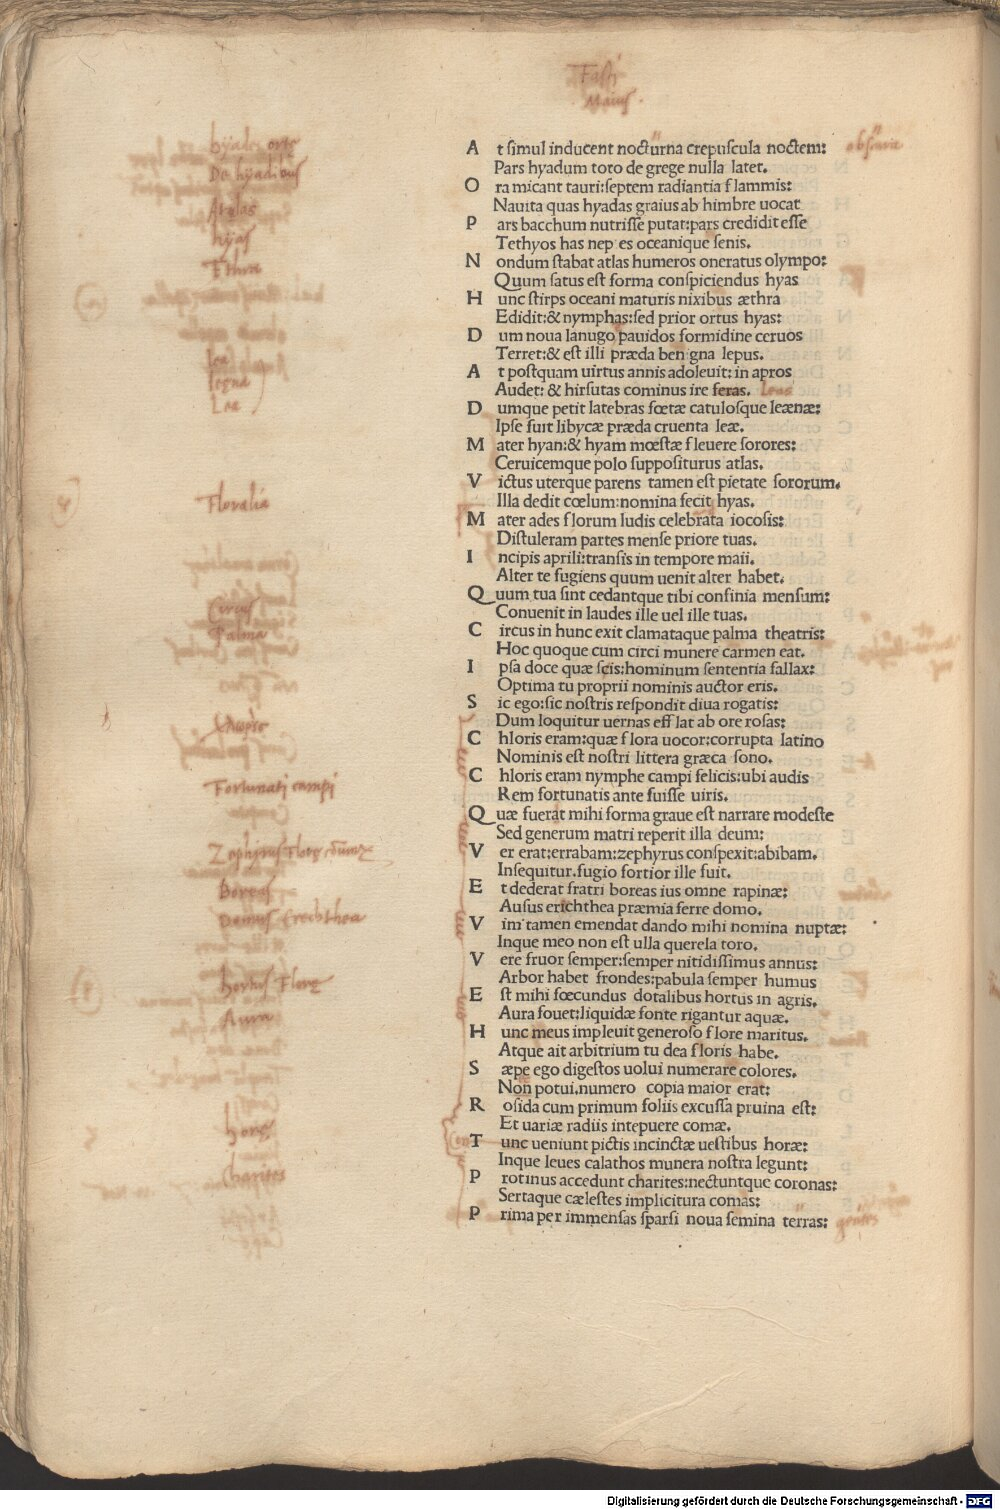 Fasti
Maius.
A t simul inducent nocturna crepuscula noctem:
Pars hyadum toto de grege nulla latet.
O ra micant tauri:septem radiantia flammis:
Nauita quas hyadas graius ab himbre uocat
P ars bacchum nutriſſe putat:pars credidit eſſe
Tethyos has nep es oceanique ſenis.
N ondum ſtabat atlas humeros oneratus olympo:
Quum ſatus eſt forma conſpiciendus hyas
H unc ſtirps oceani maturis nixibus æthra
Edidit:& nymphas:ſed prior ortus hyas:
D um noua lanugo pauidos formidine ceruos
Terret:& eſt illi præda benigna lepus.
A t poſtquam uirtus annis adoleuit: in apros
Audet: & hirſutas cominus ire feras. leas
D umque petit latebras fœtæ catulosque leænæ:
Ipſe fuit libycæ præda cruenta leæ.
M ater hyan:& hyam mœſtæ fleuere ſorores:
Ceruicemque polo ſuppoſiturus atlas.
V ictus uterque parens tamen eſt pietate ſororum.
Illa dedit cœlum:nomina fecit hyas.
M ater ades florum ludis celebrata iocoſis:
Diſtuleram partes menſe priore tuas.
I ncipis aprili:tranſis in tempore maii.
Alter te fugiens quum uenit alter habet.
Q uum tua ſint cedantque tibi confinia menſum:
Conuenit in laudes ille uel ille tuas.
C ircus in hunc exit clamataque palma theatris:
Hoc quoque cum circi munere carmen eat.
I pſa doce quæ ſcis:hominum ſententia fallax:
Optima tu proprii nominis auctor eris.
S ic ego:ſic noſtris reſpondit diua rogatis:
Dum loquitur uernas efflat ab ore roſas:
C hloris eram:quæ flora uocor:corrupta latino
Nominis eſt noſtri littera græca ſono.
C hloris eram nymphe campi felicis:ubi audis
Rem fortunatis ante fuiſſe uiris.
Q uæ fuerat mihi forma graue eſt narrare modeſte
Sed generum matri reperit illa deum:
V er erat:errabam:zephyrus conſpexit:abibam.
Inſequitur.fugio fortior ille fuit.
E t dederat fratri boreas ius omne rapinæ:
Auſus erichthea præmia ferre domo.
V im tamen emendat dando mihi nomina nuptæ:
Inque meo non eſt ulla querela toro.
V ere fruor ſemper:ſemper nitidiſſimus annus:
Arbor habet frondes:pabula ſemper humus
E ſt mihi fœcundus dotalibus hortus in agris.
Aura fouet:liquidæ fonte rigantur aquæ.
H unc meus impleuit generoſo flore maritus.
Atque ait arbitrium tu dea floris habe.
S æpe ego digeſtos uolui numerare colores.
Non potui.numero copia maior erat:
R oſida cum primum foliis excuſſa pruina eſt:
Et uariæ radiis intepuere comæ.
T unc ueniunt pictis incinctæ ueſtibus horæ:
Inque leues calathos munera noſtra legunt:
P rotinus accedunt charites:nectuntque coronas:
Sertaque cæleſtes implicitura comas:
P rima per immenſas ſparſi noua ſemina terras: gentes
De hyadibus
Atlas
hyas
Ethra
Lea
Floralia
Circus
Palma
Fortunati campi
Zephyrus
Boreas
Domus Erechthea
hortus Florę
Aura
horę
Charites
Digitalisierung gefördert durch die Deutsche Forschungsgemeinschaft - DFG